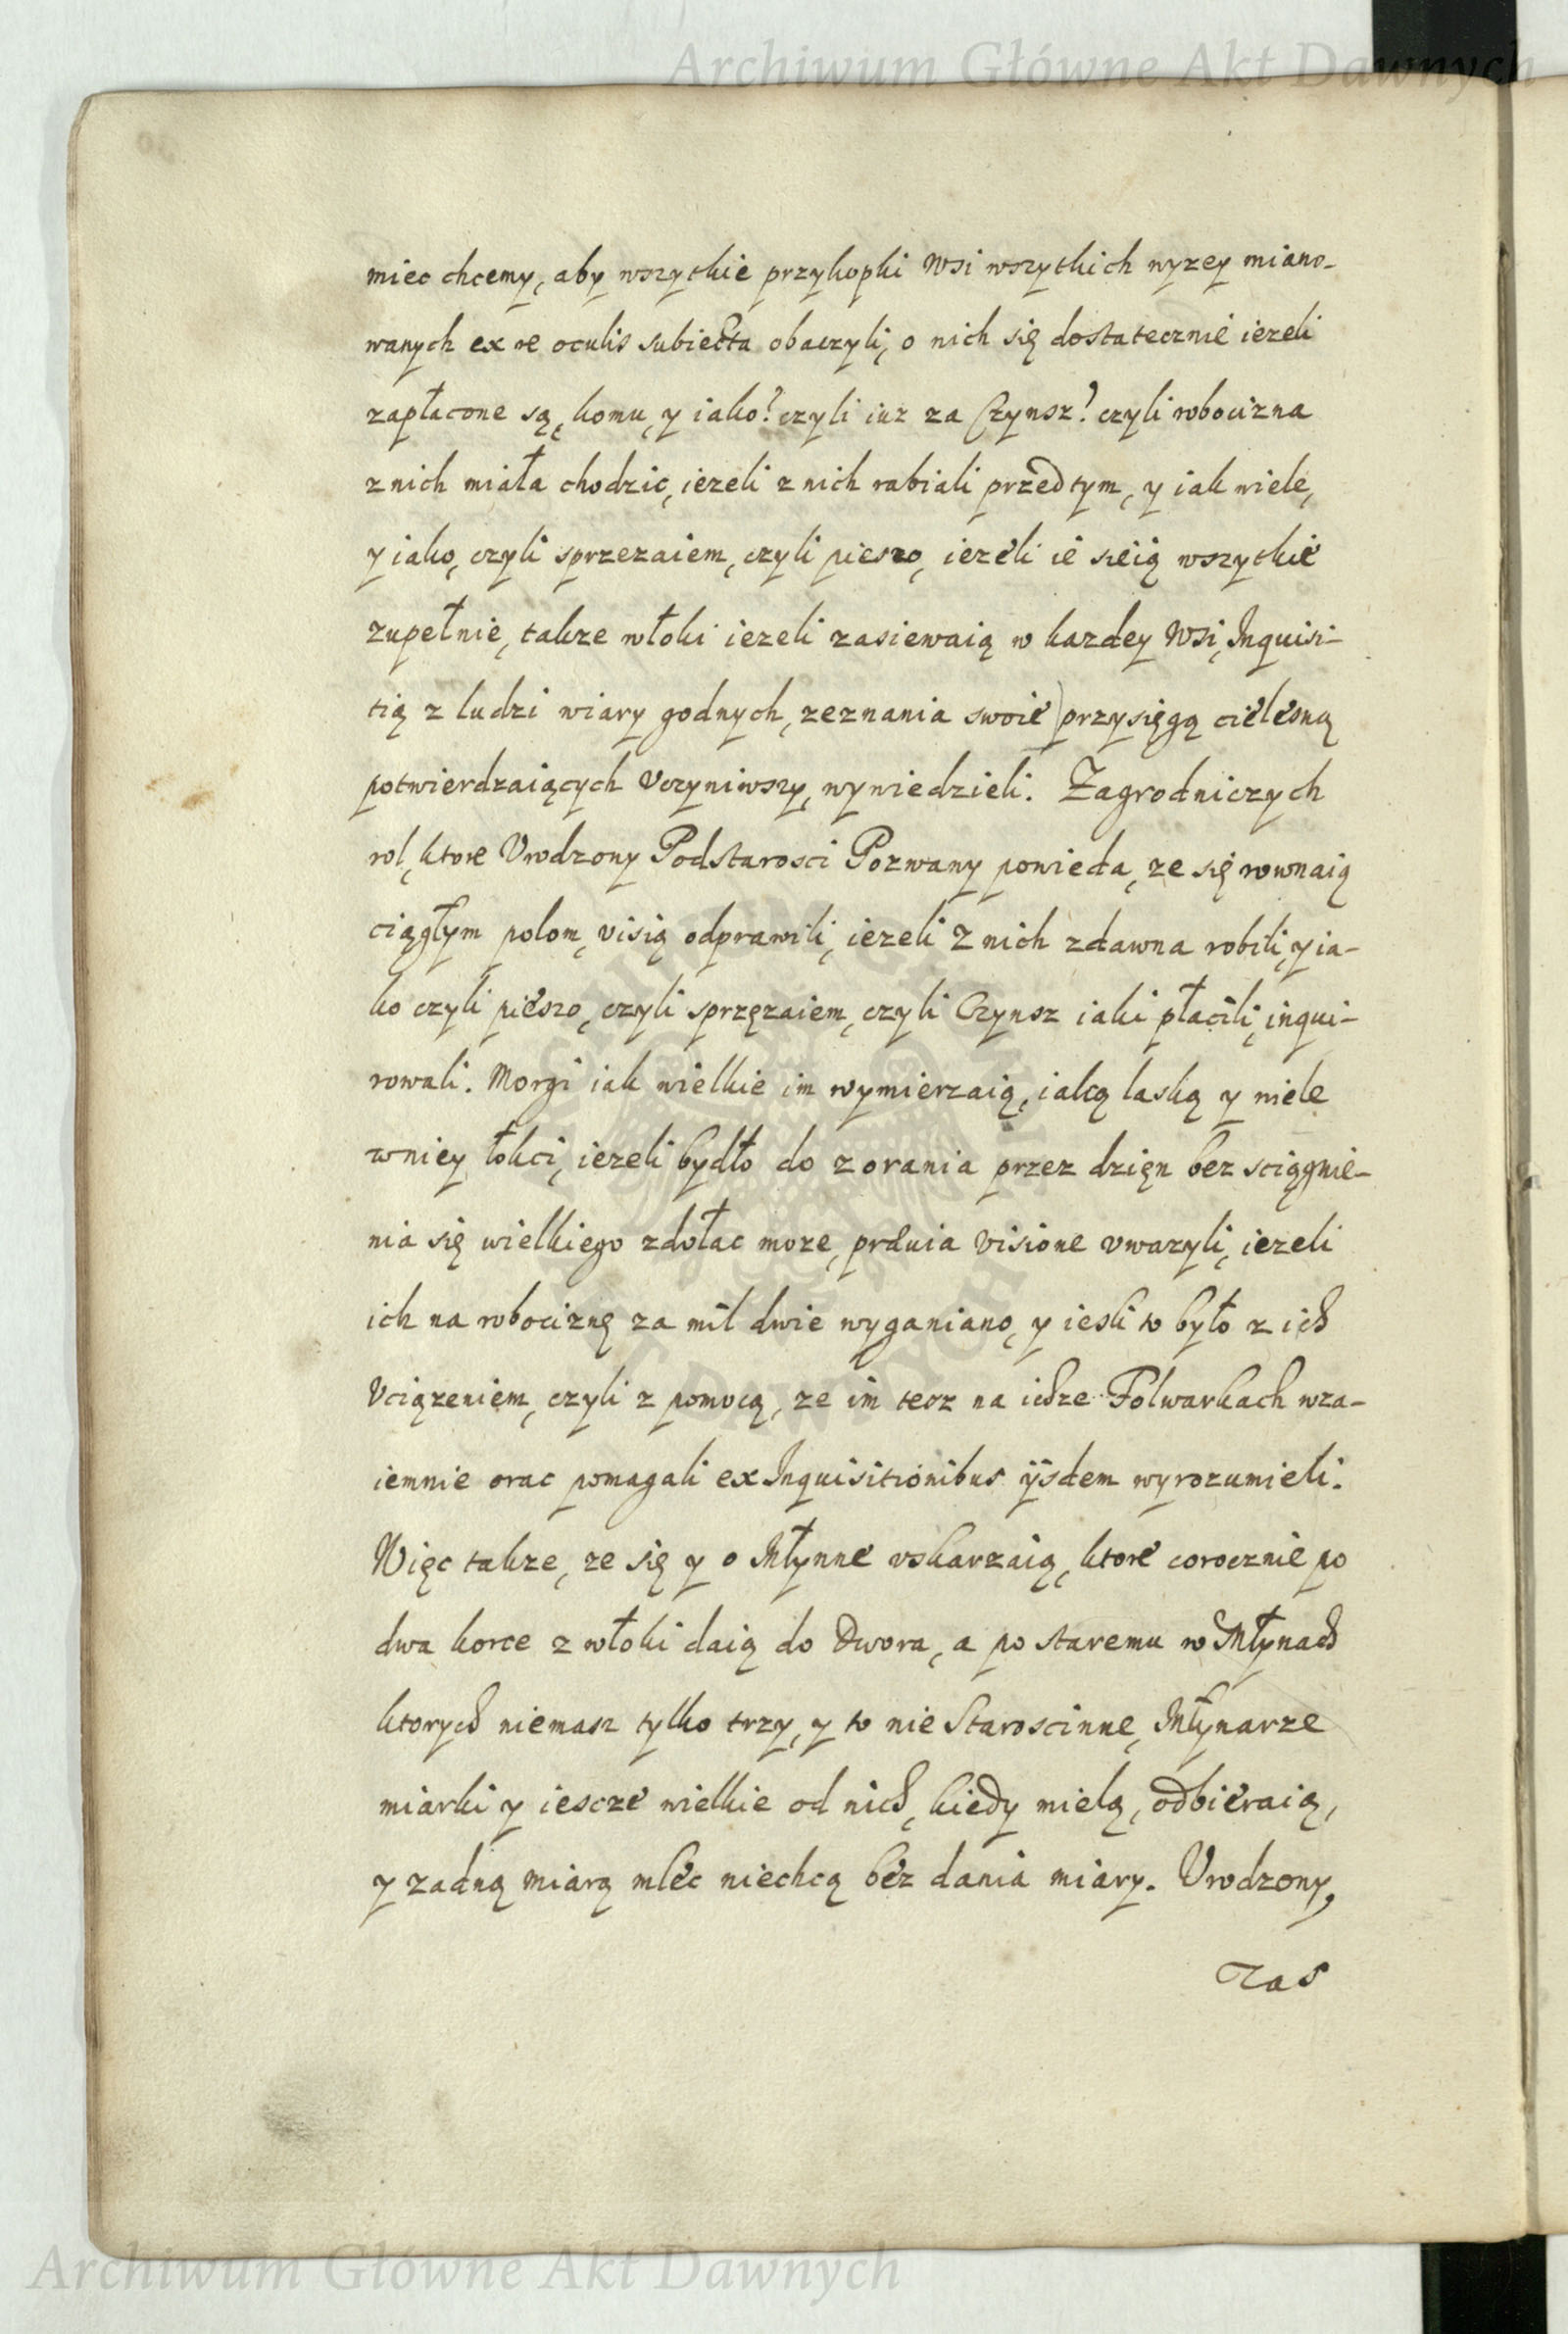 Archiwum Główne Akt Dawnych
miec chcemy, aby wszytkie przykopki wsi wszytkich wyzey miano-
wanych ex re oculis subiecta obaczyli, o nich się dostatecznie iezeli
zapłacone są, komu, y iako? czyli iuz za Czynsz? czyli robocizna
z nich miała chodzic, iezeli z nich rabiali przedtym, y iak wiele,
y iako, czyli sprzezaiem, czyli pieszo, iezeli ie sieią wszytkie
zupełnie, takze włoki iezeli zasiewaią w kazdey wsi, Inquisi-
tią z ludzi wiary godnych, zeznania swoie przysięgą cielesną
potwierdzaiących Vczyniwszy, wywiedzieli. Zagrodniczych
rol, ktore Vrodzony Podstarosci Pozwany powieda, ze się rownaią
ciągłym polom, visią odprawili, iezeli z nich zdawna robili, y ia-
ko czyli pieszo, czyli sprzęzaiem, czyli Czynsz iaki płacili, inqui-
rowali. Morgi iak wielkie im wymierzaią, iaką laską y wiele
w niey łokci, iezeli bydło do zorania przez dzięn bez sciągnie-
nia się wielkiego zdołac moze, prævia visione vwazyli, iezeli
ich na robociznę za mil dwie wyganiano, y iesli to było z ich
Vciązeniem, czyli z pomocą, ze im tesz na ichze Folwarkach wza-
iemnie orac pomagali ex Inquisitionibus ijsdem wyrozumieli.
Więc takze, ze się y o Młynne vskarzaią, ktore corocznie po
dwa korce z włoki daią do Dwora, a po staremu w Młynach
ktorych niemasz tylko trzy, y to nie Staroscinne, Młynarze
miarki y iescze wielkie od nich, kiedy mielą, odbieraią,
y zadną miarą mlec niechcą bez dania miary. Vrodzony,
zas
Archiwum Główne Akt Dawnych